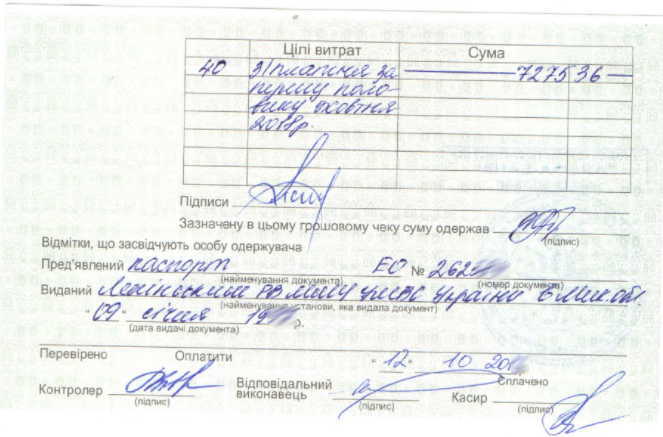 Цілі витрат Сума
40 З/платня за 7275 36
першу поло-
вину жовтня
2018р.
Підписи
Зазначену в цьому грошовому чеку суму одержав
(підпис)
Відмітки, що засвідчують особу одержувача
Пред'явлений паспорт ЕО № 262
(найменування документа) (номер документа)
Виданий Ленінським РВ УМВС України в Микол обл
(найменування установи, яка видала документ)
"09" січня 19 р.
(дата видачі документа)
Перевірено Оплатити "12" 10 201
Сплачено
Контролер Відповідальний виконавець Касир
(підпис) (підпис) (підпис)